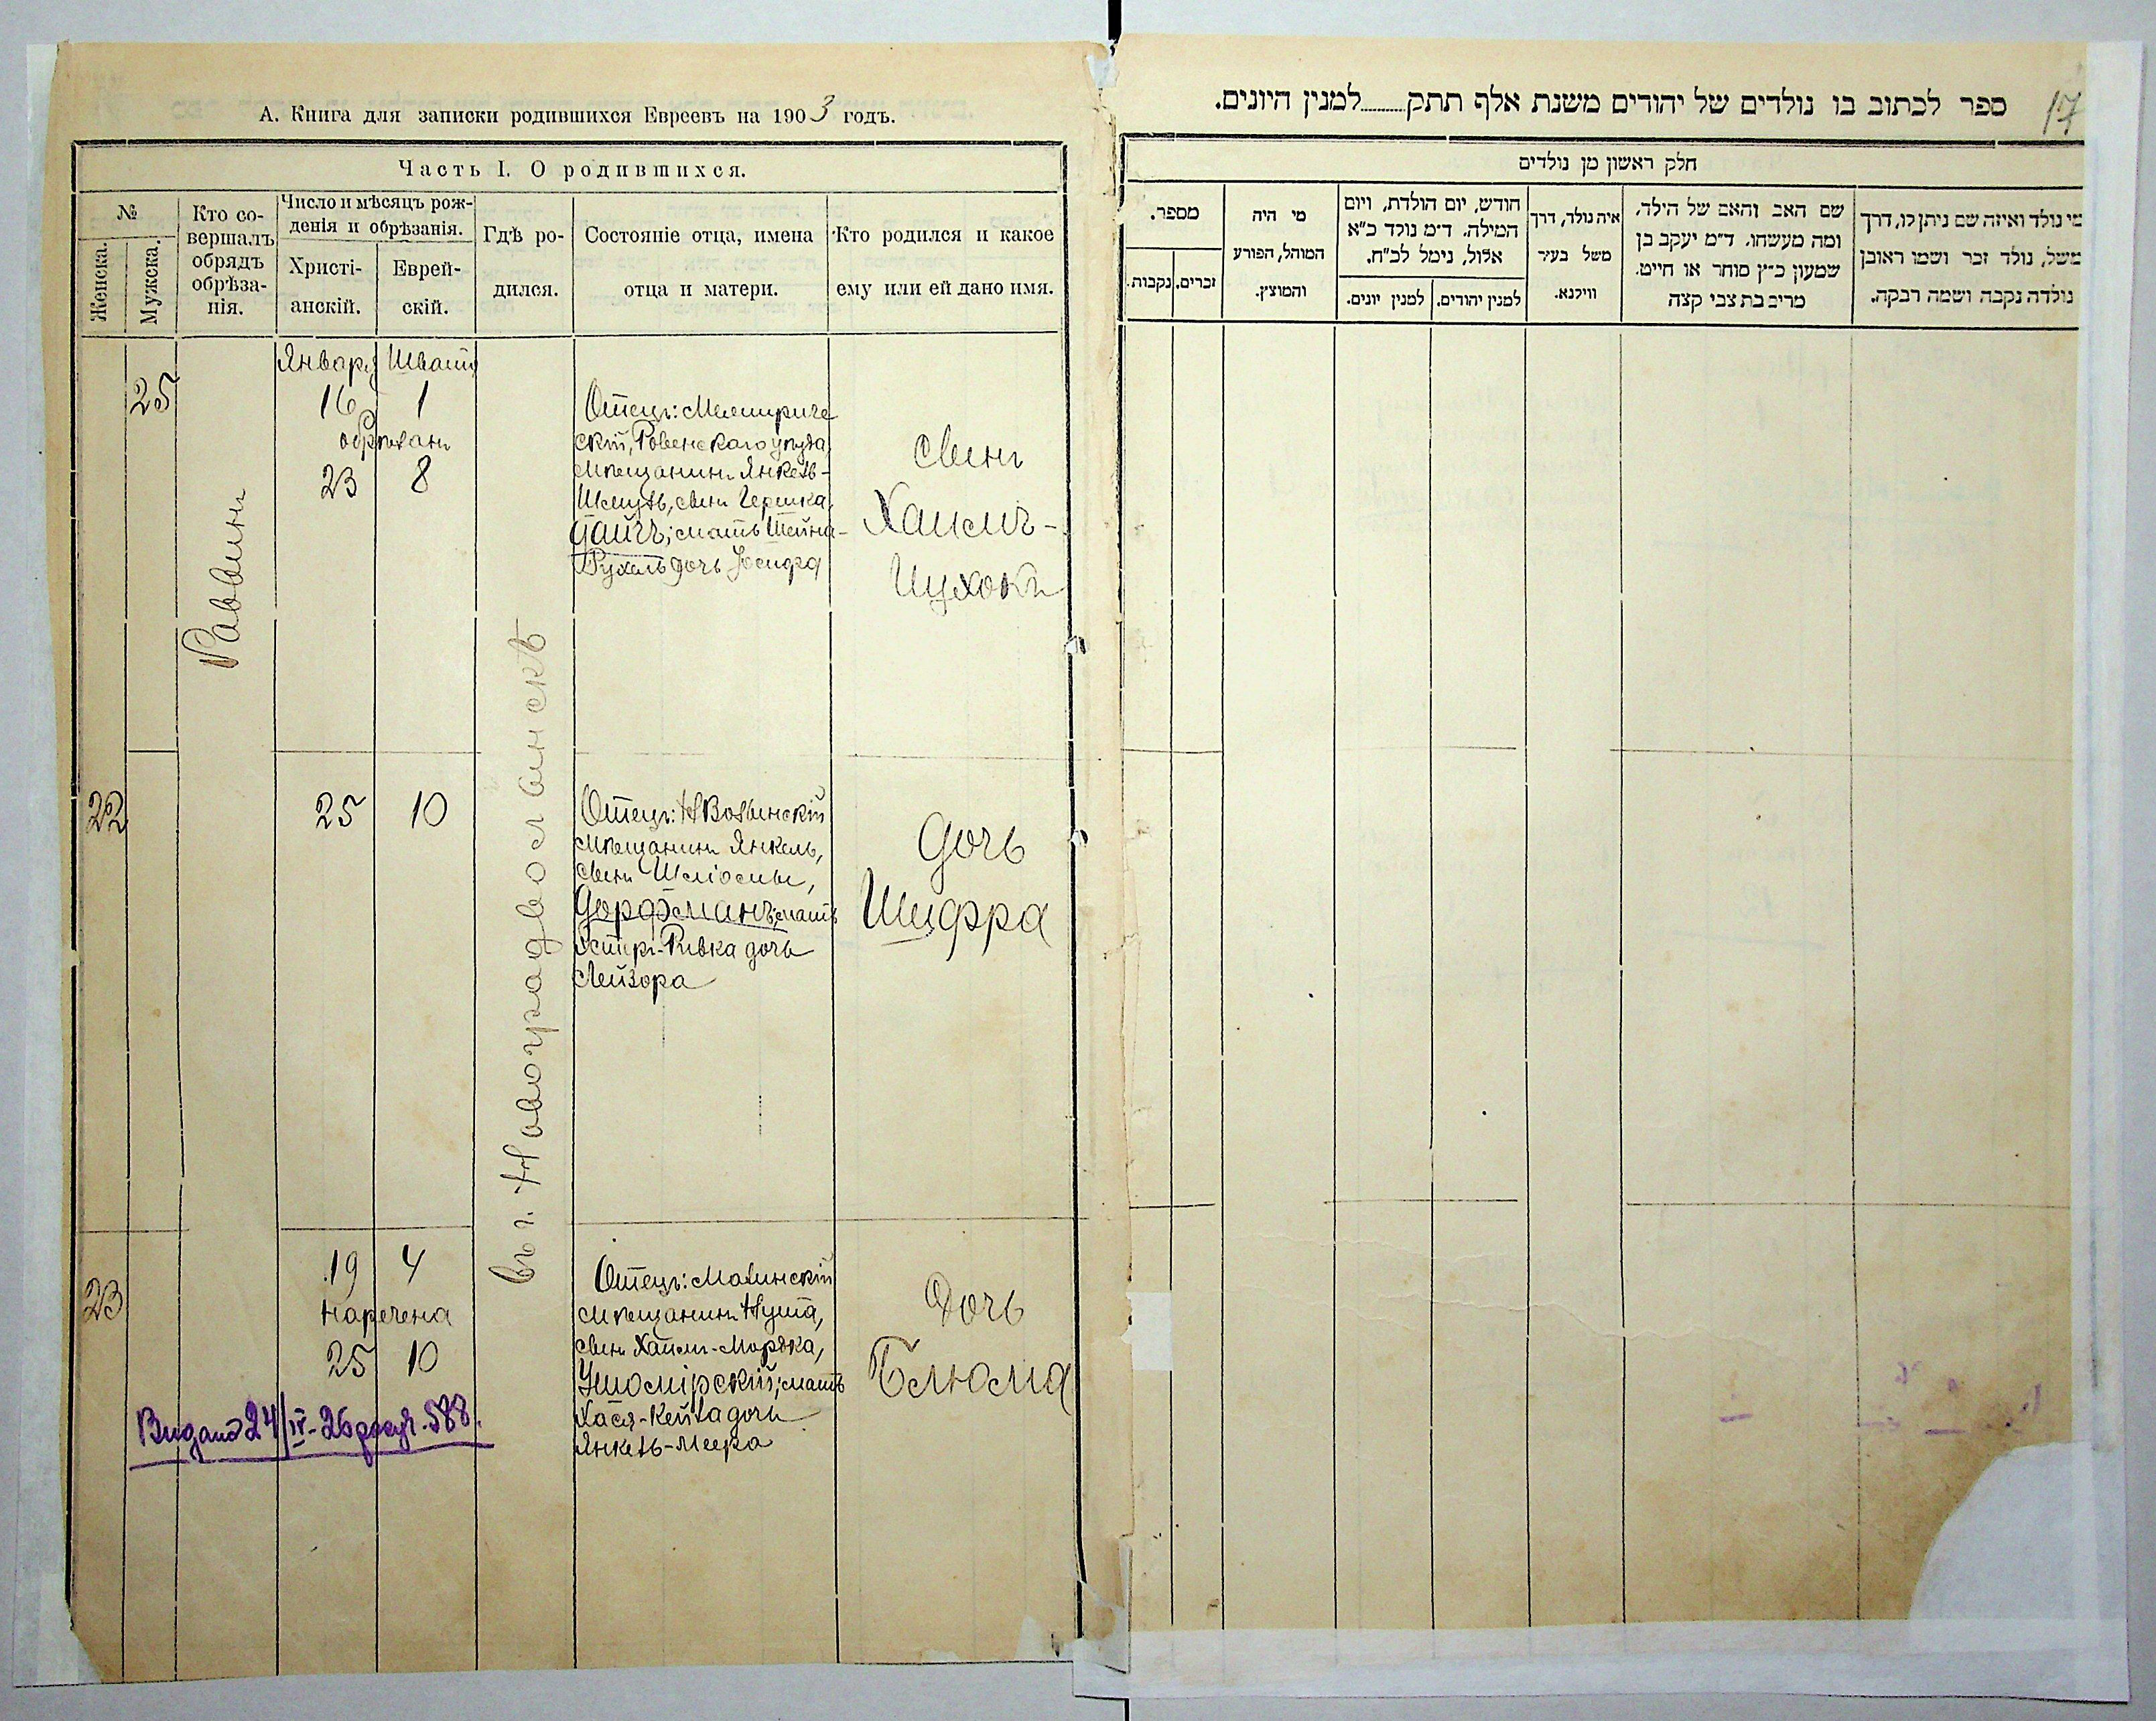 А. Книга для записки родившихся Евреевъ на 1903 годъ.
Часть I. О родившихся.
№
Женска.
Мужска.
Кто со-
вершалъ
обрядъ
обрѣза-
нія.
Число и мѣсяцъ рож-
денія и обрѣзанія.
Христі-
анскій.
Еврей-
скій.
Гдѣ ро-
дился.
Состояніе отца, имена
отца и матери.
Кто родился и какое
ему или ей дано имя.
25
Раввинъ
Января Шватъ
16 1
обрѣзанъ
23 8
въ г. Новоградволынскѣ
Отецъ: Межириче
скій, Ровенскаго уѣзда,
мѣщанинъ Янкель-
Шмуль, сынъ Гершка,
Гайгъ; мать Шейна-
Рухель дочь Іосифа
Сынъ
Хаимъ-
Ицхокъ
22
25 10
Отецъ: НВолынскій
мѣщанинъ Янкель,
сынъ Шліомы,
Дорфманъ; мать
Эстеръ-Ривка дочь
Лейзора
Дочь
Шифра
23
19 4
Наречена
25 10
Видано 24/IV-26 588.
Отецъ:
мѣщанинъ Нута,
сынъ Хаимъ-Мордка,
Ушомірскій; мать
Хася-Кейла дочь
Янкель-Меера
Дочь
Блюма
17
ספר לכתוב בו נולדים של יהודים משנת אלף תתק למנין היונים.
חלק ראשון מן נולדים
מי נולד ואיזה שם ניתן לו, דרך
משל, נולד זכר ושמו ראובן
נולדה נקבה ושמה רבקה.
שם האב והאם של הילד,
ומה מעשהו. ד״מ יעקב בן
שמעון כ״ץ סוחר או חייט.
מרים בת צבי קצה
איה נולד, דרך
משל בעיר
ווילנא.
חודש, יום הולדת, ויום
המילה. ד״מ נולד כ״א
אלול, נימל לכ״ח.
למנין יהודים.
למנין יונים.
מי היה
המוהל, הפורע
והמוצץ.
מספר.
זכרים.
נקבות.